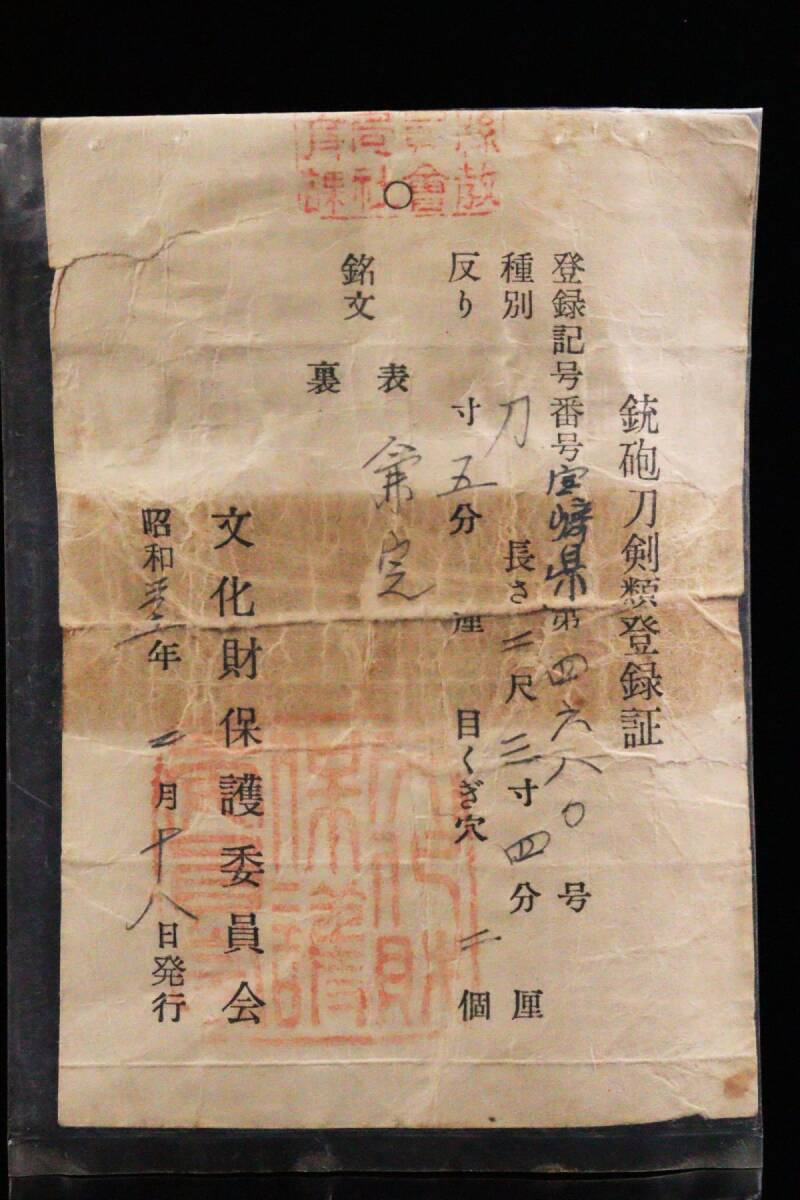 銃砲刀剣類登録証
登録記号番号宮崎県第四六八〇号
種別 刀 長さ二尺三寸四分 厘
反り 寸五分 厘 目くぎ穴 二個
銘文 表
裏
文化財保護委員会
昭和 年二月十八日発行